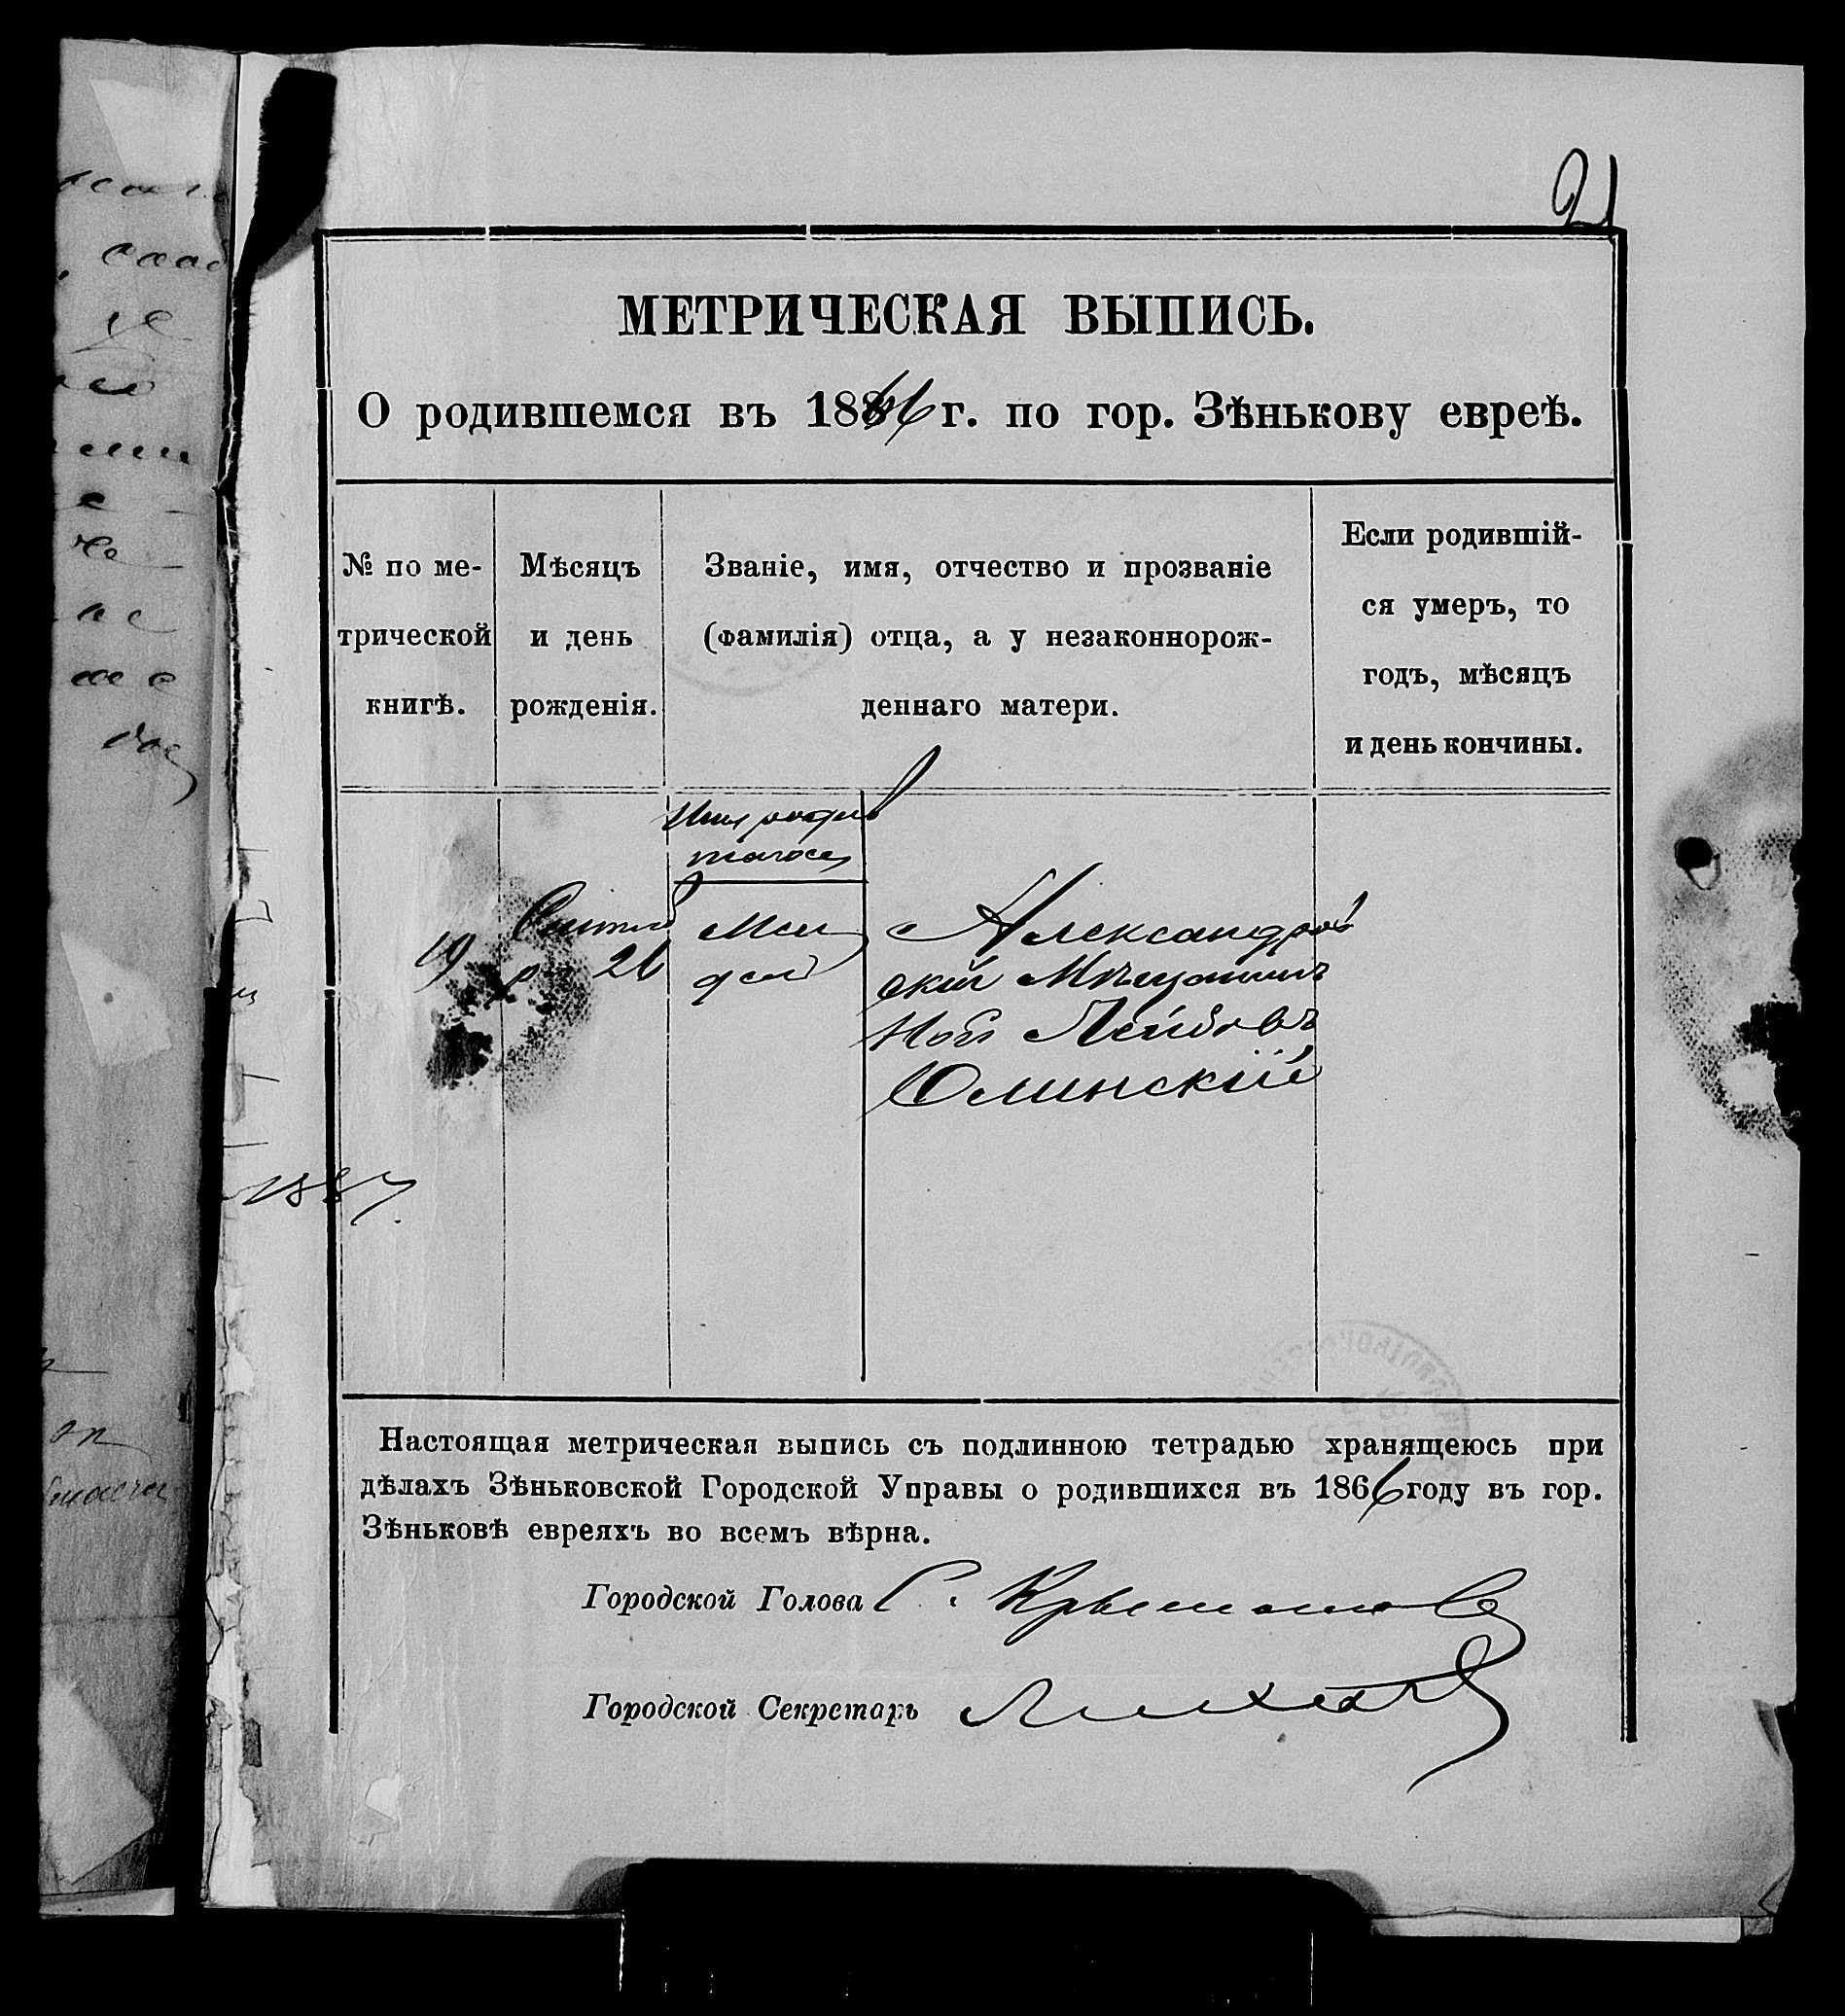 21
МЕТРИЧЕСКАЯ ВЫПИСЬ.
О родившемся въ 1866 г. по гор. Зѣнькову евреѣ.
№ по ме-
трической
книгѣ.
Мѣсяцъ
и день
рожденія.
Званіе, имя, отчество и прозваніе
(фамилія) отца, а у незаконнорож-
деннаго матери.
Если родившій-
ся умеръ, то
годъ, мѣсяцъ
и день кончины.
Имя родив
шагося
19
Сентяб
ря 26
Мен
дель
Александров
скій Мѣщанинъ
Лейбовъ
Юлинскій
1887.
Настоящая метрическая выпись съ подлинною тетрадью хранящеюсь при
дѣлахъ Зѣньковской Городской Управы о родившихся въ 1866 году въ гор.
Зѣньковѣ евреяхъ во всемъ вѣрна.
Городской Голова С.
Городской Секретарь